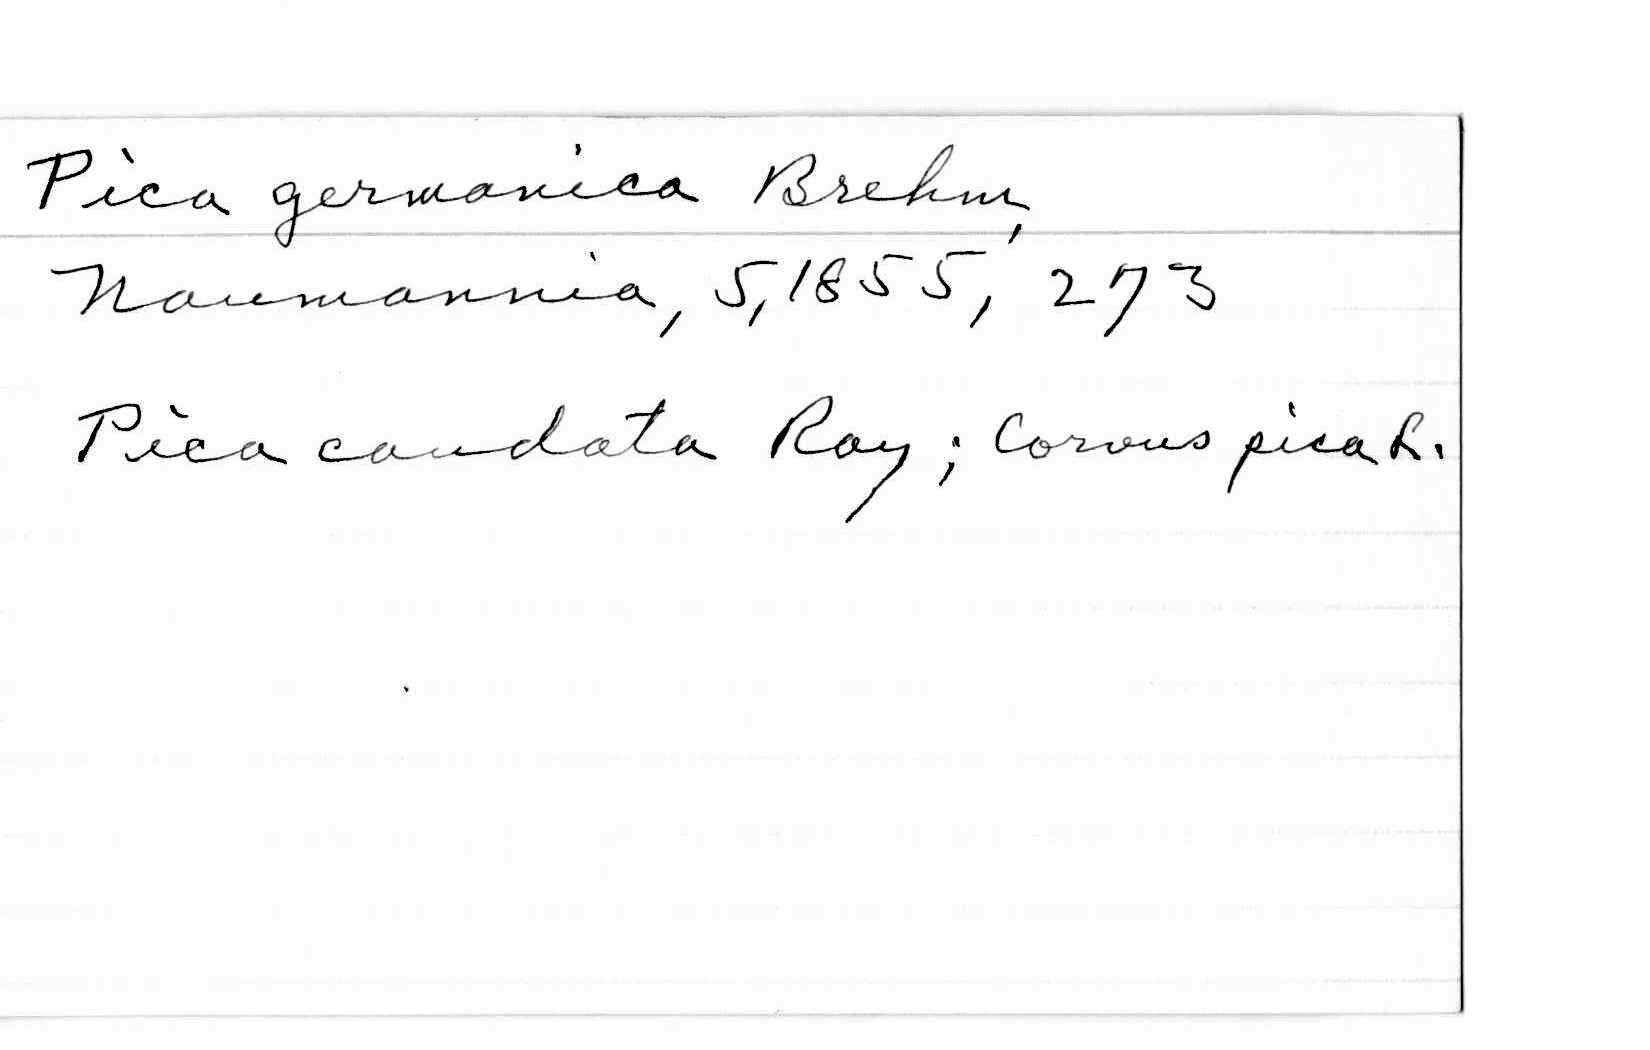 Pica germanica Brehm,
Naumannia, 5, 1855, 273
Pica caudata Ray; Corvus pica L.